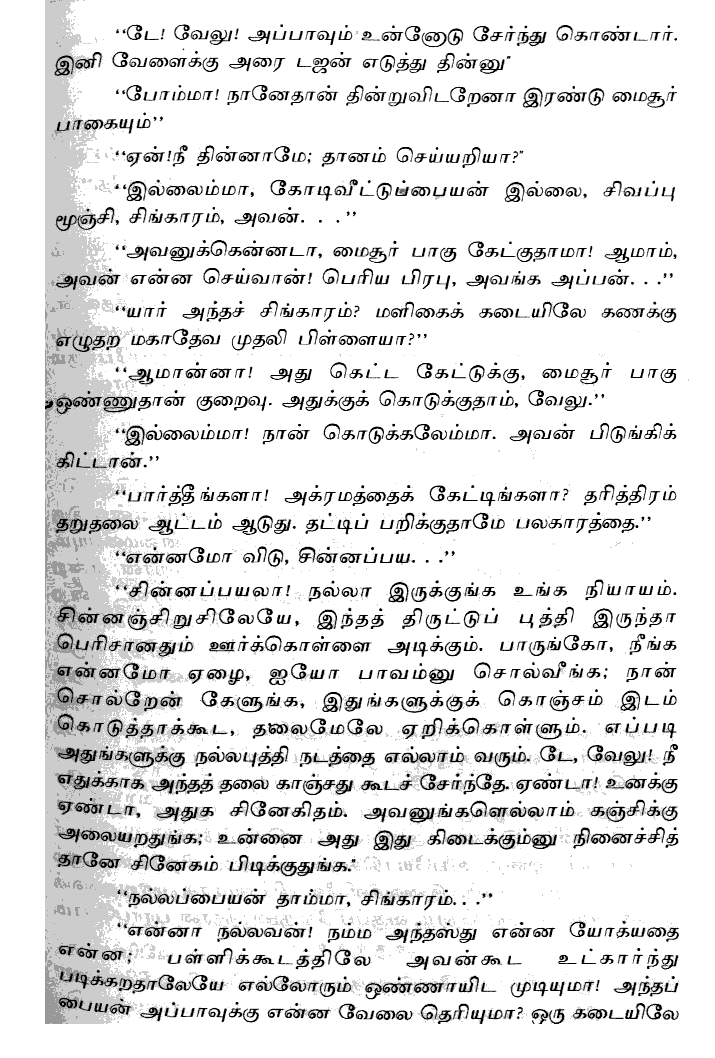 ‘‘டே! வேலு! அப்பாவும் உன்னோடு சேர்ந்து கொண்டார்.
இனி வேளைக்கு அரை டஜன் எடுத்து தின்னு”
‘‘போம்மா! நானேதான் தின்றுவிடறேனா இரண்டு மைசூர்
பாகையும்’’
‘‘ஏன்!நீ தின்னாமே; தானம் செய்யறியா?”
‘‘இல்லைம்மா, கோடிவீட்டுபையன் இல்லை, சிவப்பு
மூஞ்சி, சிங்காரம், அவன். . .’’
‘‘அவனுக்கென்னடா, மைசூர் பாகு கேட்குதாமா! ஆமாம்,
அவன் என்ன செய்வான்! பெரிய பிரபு, அவங்க அப்பன். . .’’
‘‘யார் அந்தச் சிங்காரம்? மளிகைக் கடையிலே கணக்கு
எழுதற மகாதேவ முதலி பிள்ளையா?’’
‘‘ஆமான்னா! அது கெட்ட கேட்டுக்கு, மைசூர் பாகு
ஒண்ணுதான் குறைவு. அதுக்குக் கொடுக்குதாம், வேலு.’’
‘‘இல்லைம்மா! நான் கொடுக்கலேம்மா. அவன் பிடுங்கிக்
கிட்டான்.’’
‘‘பார்த்தீங்களா! அக்ரமத்தைக் கேட்டிங்களா? தரித்திரம்
தறுதலை ஆட்டம் ஆடுது. தட்டிப் பறிக்குதாமே பலகாரத்தை.’’
‘‘என்னமோ விடு, சின்னப்பய. . .’’
‘‘சின்னப்பயலா! நல்லா இருக்குங்க உங்க நியாயம்.
சின்னஞ்சிறுசிலேயே, இந்தத் திருட்டுப் புத்தி இருந்தா
பெரிசானதும் ஊர்க்கொள்ளை அடிக்கும். பாருங்கோ, நீங்க
என்னமோ ஏழை, ஐயோ பாவம்னு சொல்வீங்க; நான்
சொல்றேன் கேளுங்க, இதுங்களுக்குக் கொஞ்சம் இடம்
கொடுத்தாக்கூட, தலைமேலே ஏறிக்கொள்ளும். எப்படி
அதுங்களுக்கு நல்லபுத்தி நடத்தை எல்லாம் வரும். டே, வேலு! நீ
எதுக்காக அந்தத் தலை காஞ்சது கூடச் சேர்ந்தே. ஏண்டா! உனக்கு
ஏண்டா, அதுக சினேகிதம். அவனுங்களெல்லாம் கஞ்சிக்கு
அலையறதுங்க; உன்னை அது இது கிடைக்கும்னு நினைச்சித்
தானே சினேகம் பிடிக்குதுங்க.”
‘‘நல்லபபையன் தாம்மா, சிங்காரம். . .’’
‘‘என்னா நல்லவன்! நமம அந்தஸ்து என்ன யோக்யதை
என்ன; பள்ளிக்கூடத்திலே அவன்கூட உட்கார்ந்து
படிக்கறதாலேயே எல்லோரும் ஒண்ணாயிட முடியுமா! அந்தப்
பையன் அப்பாவுக்கு என்ன வேலை தெரியுமா? ஒரு கடையிலே